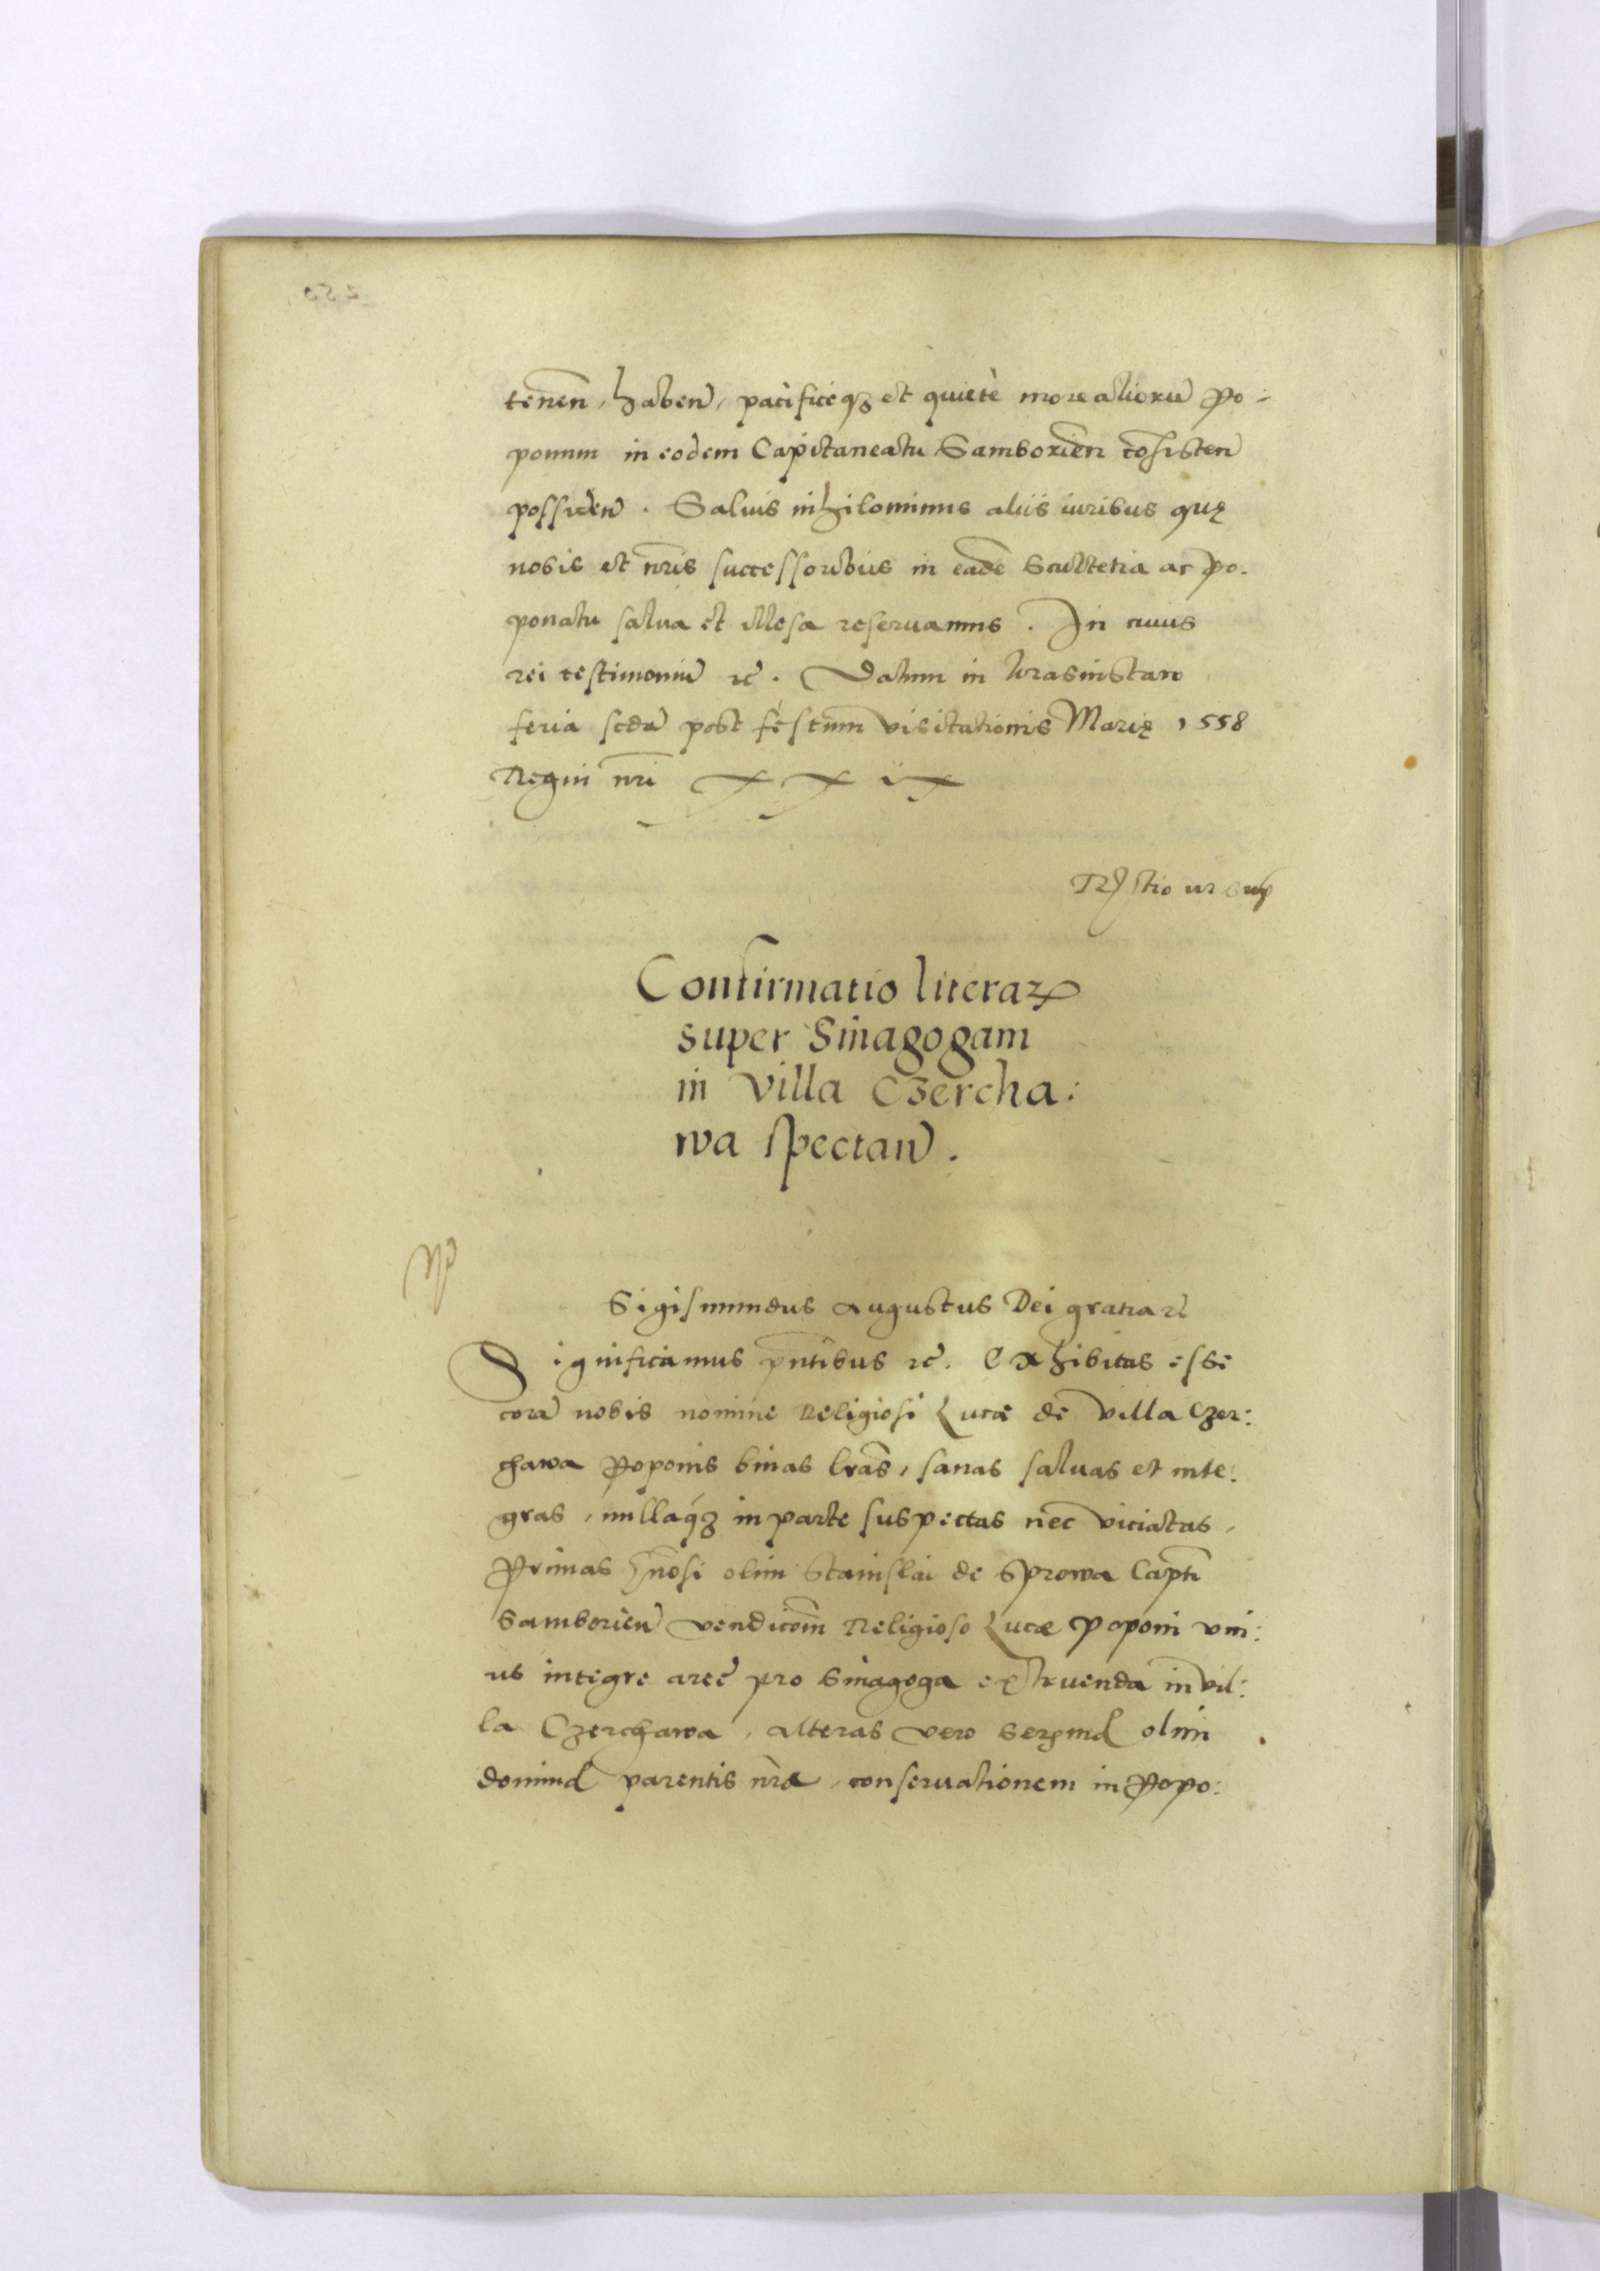 tenen, haben, pacificeq3 et quietè more aliorũ Po-
ponum in eodem Capitaneatu Samborien cõsisten
possiden. Saluis nihilominus aliis iuribus quę
nobis et nris successoribus in eadẽ Scultetia ac Po-
ponatu salua et illesa reseruamus. In cuius
rei testimoniũ rc. Datum in Crasnistaw
feria scda post festum visitationis Marię 1558
Regni nri XXIX
Rstio ut sup
Confirmatio literaꝝ
super Sinagogam
in villa Czercha:
wa spectan.
Sigismundus Augustus Dei gratia rc
Significamus pntibus rc. Exhibitas esse
corã nobis nomine Religiosi Lucæ de villa Czer:
chawa Poponis binas lras, sanas saluas et inte:
gras, nullaq3 in parte suspectas nec viciatas,
Primas Gnosi olim Stanislai de Sprowa Capti
Samborien venditiom Religioso Lucæ Poponi vni:
us integre aree pro Sinagoga extruenda in vil:
la Czerchawa, alteras vero Serpmi olim
domini parentis nri, conseruationem in Popo: